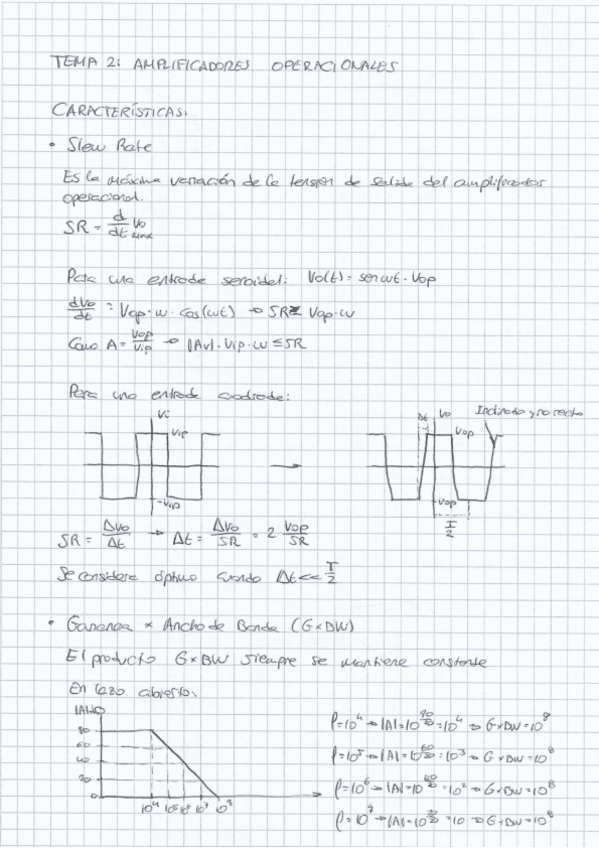 TEMA 2: AMPLIFICADORES OPERACIONALES
CARACTERÍSTICAS:
• Slew Rate
Es la máxima variación de la tensión de salida del amplificador
operacional.
SR = d/dt Vo max
Para una entrada senoidal: Vo(t) = sen wt · Vop
dVo/dt = Vop · w · cos(wt) → SR ≥ Vop · w
Como A = Vop/Vip → |Av| · Vip · w ≤ SR
Para una entrada cuadrada:
Vi
Vip
-Vip
Δt Vo Inclinado y no recto
Vop
-Vop
T/2
SR = ΔVo/Δt → Δt = ΔVo/SR = 2 Vop/SR
Se considera óptimo cuando Δt << T/2
• Ganancia x Ancho de Banda (GxBW)
El producto GxBW siempre se mantiene constante
En lazo abierto:
80
60
40
20
0
10^4 10^5 10^6 10^7 10^8
f=10^4 → |A|=10^(80/20)=10^4 → GxBW=10^8
f=10^5 → |A|=10^(60/20)=10^3 → GxBW=10^8
f=10^6 → |A|=10^(40/20)=10^2 → GxBW=10^8
f=10^7 → |A|=10^(20/20)=10 → GxBW=10^8